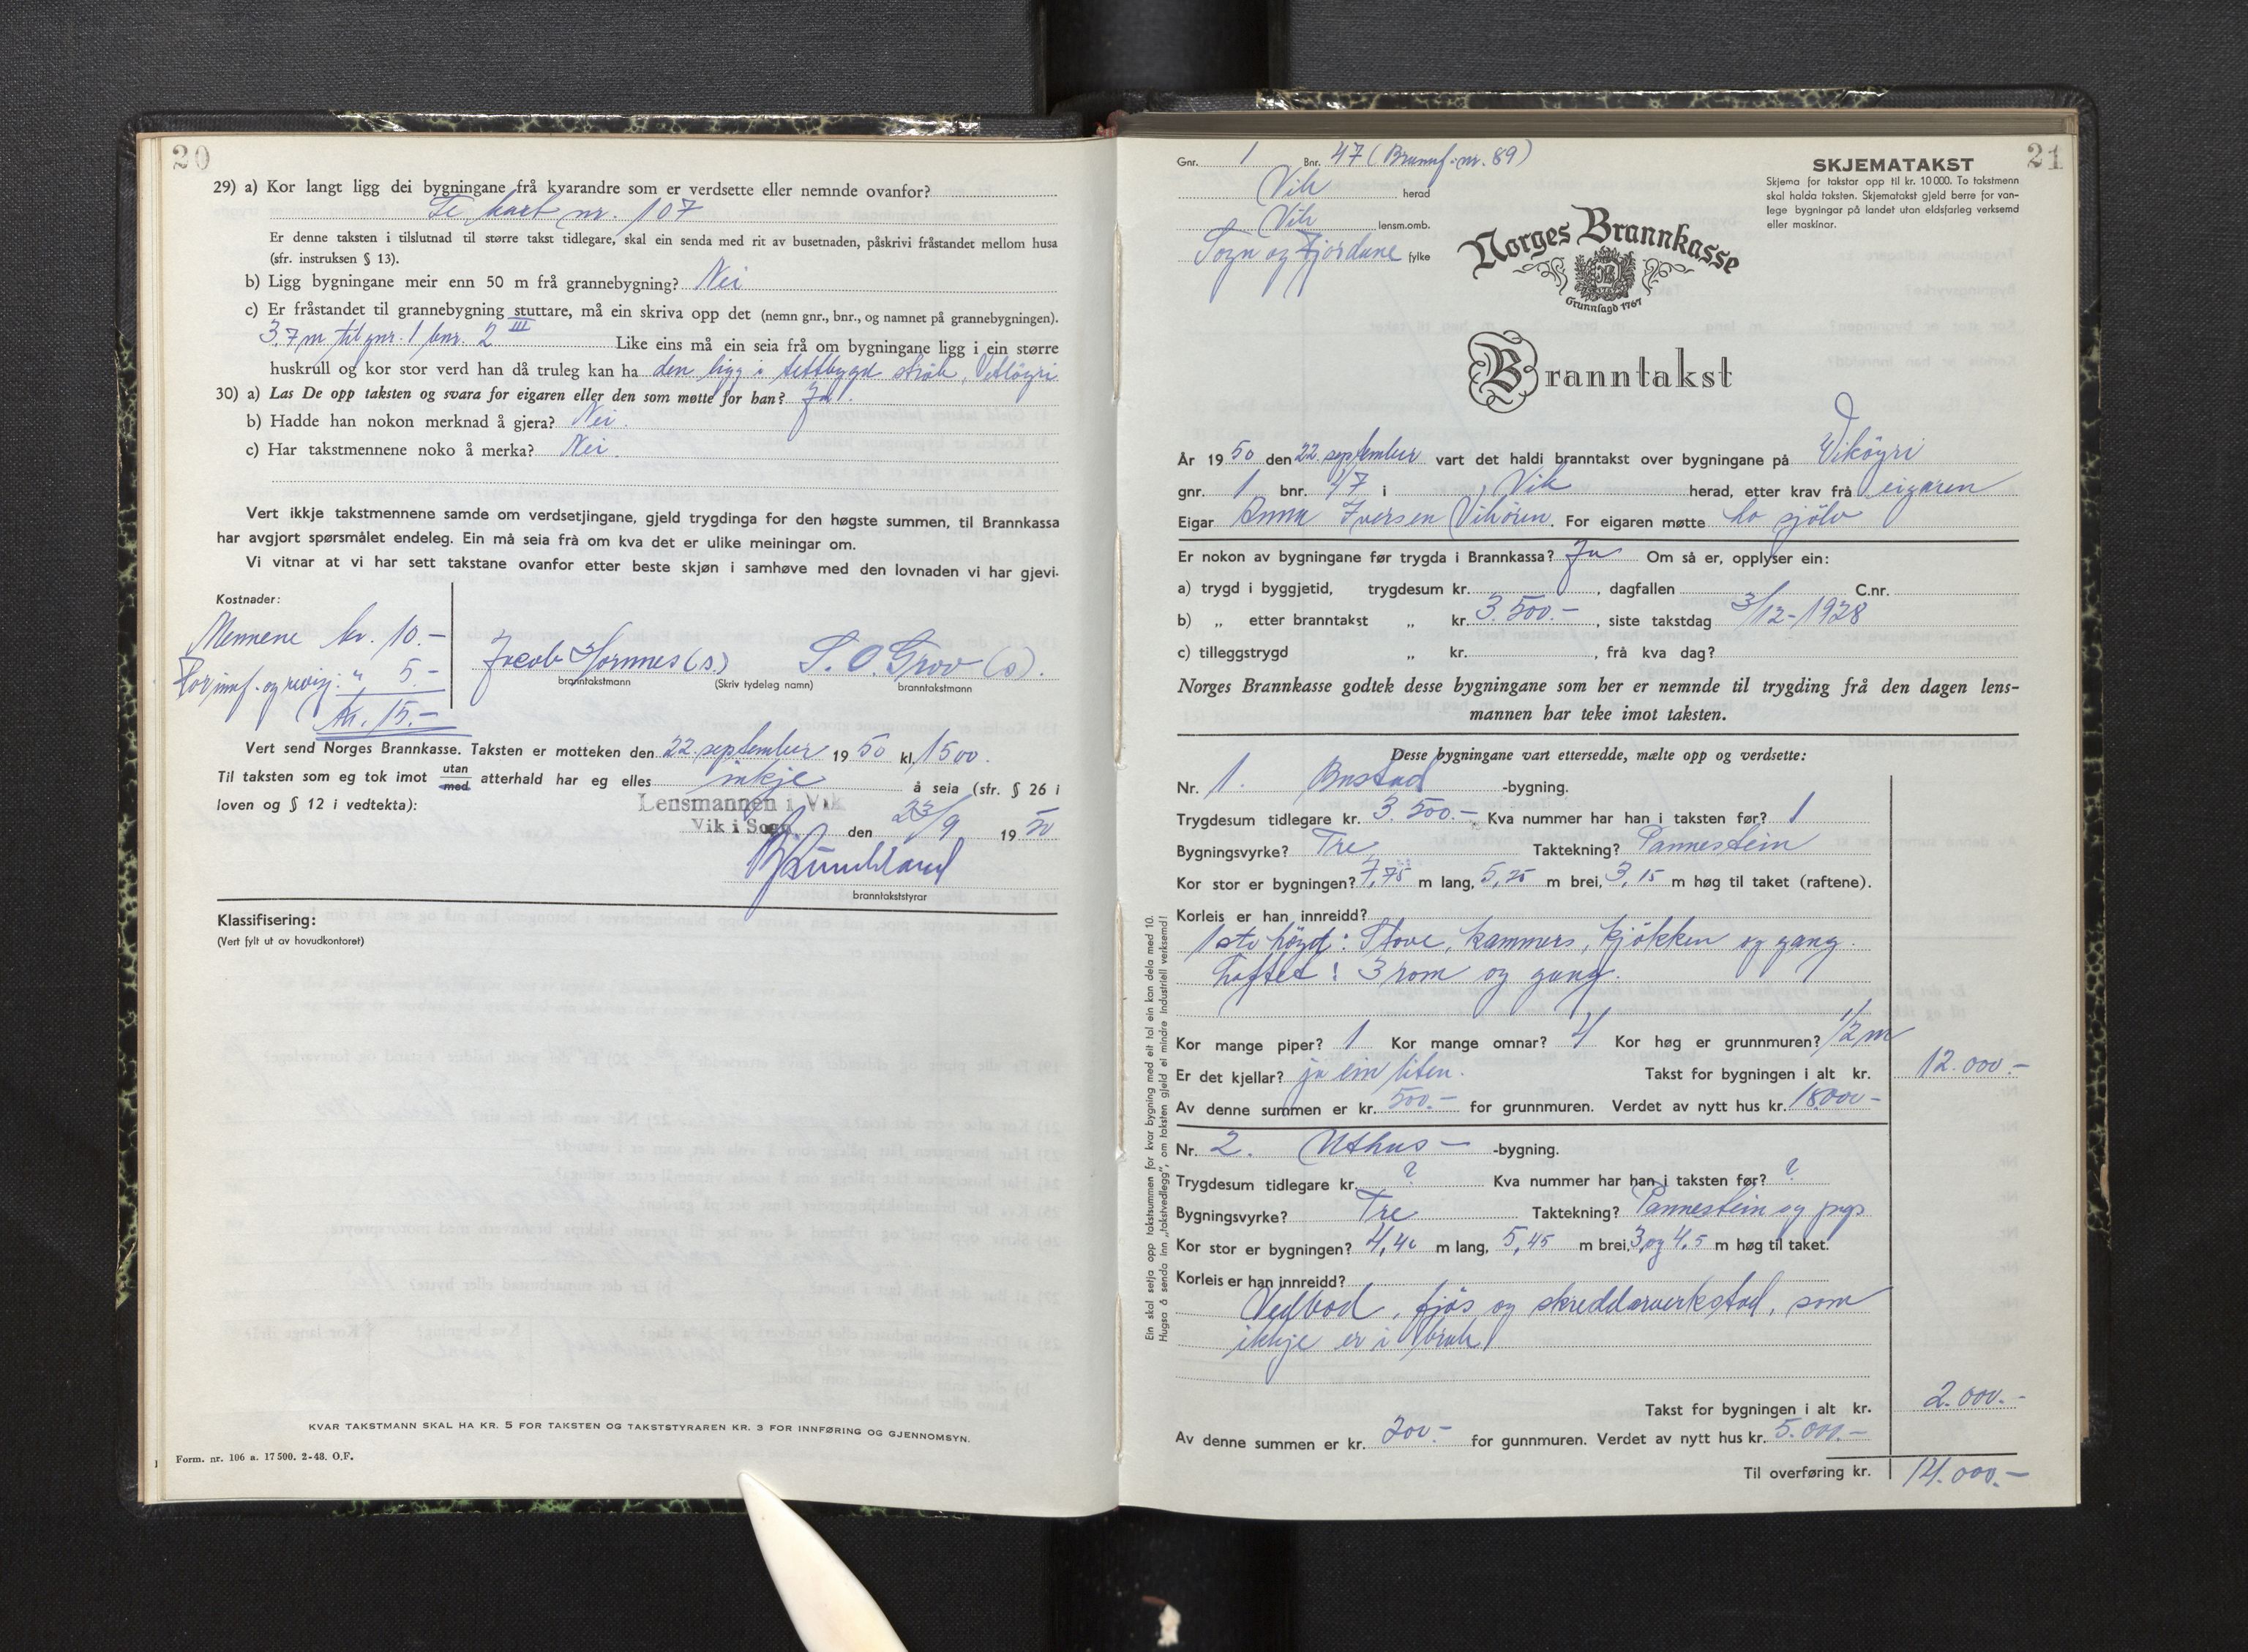 20
29) a) Kor langt ligg dei bygningane frå kvarandre som er verdsette eller nemnde ovanfor?
kart nr. 107
Er denne taksten i tilslutnad til større takst tidlegare, skal ein senda med rit av busetnaden, påskrivi fråstandet mellom husa
(sfr. instruksen § 13).
b) Ligg bygningane meir enn 50 m frå grannebygning? Nei
c) Er fråstandet til grannebygning stuttare, må ein skriva opp det (nemn gnr., bnr., og namnet på grannebygningen).
3.7 m til gnr. 1 bnr. 2 III Like eins må ein seia frå om bygningane ligg i ein større
huskrull og kor stor verd han då truleg kan ha den ligg i tettbygd strök,
30) a) Las De opp taksten og svara for eigaren eller den som møtte for han? Ja.
b) Hadde han nokon merknad å gjera? Nei.
c) Har takstmennene noko å merka? Nei.
Vert ikkje takstmennene samde om verdsetjingane, gjeld trygdinga for den høgste summen, til Brannkassa
har avgjort spørsmålet endeleg. Ein må seia frå om kva det er ulike meiningar om.
Vi vitnar at vi har sett takstane ovanfor etter beste skjøn i samhøve med den lovnaden vi har gjevi.
Kostnader:
Mennene kr. 10.-
For innf. og revisj. " 5.-
Kr. 15.-
Jacob Hornnes (s.) S. O. Grov (s).
branntakstmann (Skriv tydeleg namn) branntakstmann
Vert send Norges Brannkasse. Taksten er motteken den 22. september 1950 kl. 1500.
Til taksten som eg tok imot utan/med atterhald har eg elles inkje å seia (sfr. § 26 i
loven og § 12 i vedtekta):
Lensmannen i Vik
Vik i Sogn, den 23/9 1950
branntakststyrar
Klassifisering:
(Vert fylt ut av hovudkontoret)
KVAR TAKSTMANN SKAL HA KR. 5 FOR TAKSTEN OG TAKSTSTYRAREN KR. 3 FOR INNFØRING OG GJENNOMSYN.
Form. nr. 106 a. 17500. 2-48. O.F.
21
Gnr. 1 Bnr. 47 (Brannf.nr. 89)
Vik herad
Vik lensm.omb.
Sogn og Fjordane fylke
SKJEMATAKST
Skjema for takstar opp til kr. 10000. To takstmenn
skal halda taksten. Skjematakst gjeld berre for van-
lege bygningar på landet utan eldsfarleg verksemd
eller maskinar.
Norges Brannkasse
Grunnlagd 1767
Branntakst
År 1950 den 22. september vart det haldi branntakst over bygningane på Vikøyri
gnr. 1 bnr. 47 i Vik herad, etter krav frå eigaren
Eigar Anna Iversen Vikøren. For eigaren møtte ho sjölv
Er nokon av bygningane før trygda i Brannkassa? Ja Om så er, opplyser ein:
a) trygd i byggjetid, trygdesum kr. , dagfallen C.nr.
b) „ etter branntakst „ kr. 3.500.- , siste takstdag 3/12-1928
c) tilleggstrygd „ kr. , frå kva dag?
Norges Brannkasse godtek desse bygningane som her er nemnde til trygding frå den dagen lens-
mannen har teke imot taksten.
Desse bygningane vart ettersedde, mælte opp og verdsette:
Nr. 1. Bustad -bygning.
Trygdesum tidlegare kr. 3.500.- Kva nummer har han i taksten før? 1
Bygningsvyrke? Tre Taktekning? Pannestein
Kor stor er bygningen? 7,75 m lang, 5,25 m brei, 3,15 m høg til taket (raftene).
Korleis er han innreidd?
1ste högd: Stove, kammers, kjökken og gang.
Loftet: 3 rom og gang.
Kor mange piper? 1 Kor mange omnar? 4 Kor høg er grunnmuren? 1/2 m
Er det kjellar? ja ein liten. Takst for bygningen i alt kr. 12.000.-
Av denne summen er kr. 500.- for grunnmuren. Verdet av nytt hus kr. 18.000-
Nr. 2. Uthus- -bygning.
Trygdesum tidlegare kr. ? Kva nummer har han i taksten før? ?
Bygningsvyrke? Tre Taktekning? Pannestein og
Kor stor er bygningen? 4,40 m lang, 5,45 m brei, 3, og 4,5 m høg til taket.
Korleis er han innreidd?
Vedbod, fjös og skreddarverkstad, som
ikkje er i bruk
Takst for bygningen i alt kr. 2.000.-
Av denne summen er kr. 200.- for gunnmuren. Verdet av nytt hus kr. 5.000.-
Til overføring kr. 14.000.-
Ein skal setja opp takstsummen for kvar bygning med eit tal ein kan dela med 10.
Hugsa å senda inn „takstvedlegg“, om taksten gjeld ei mindre industriell verksemd!